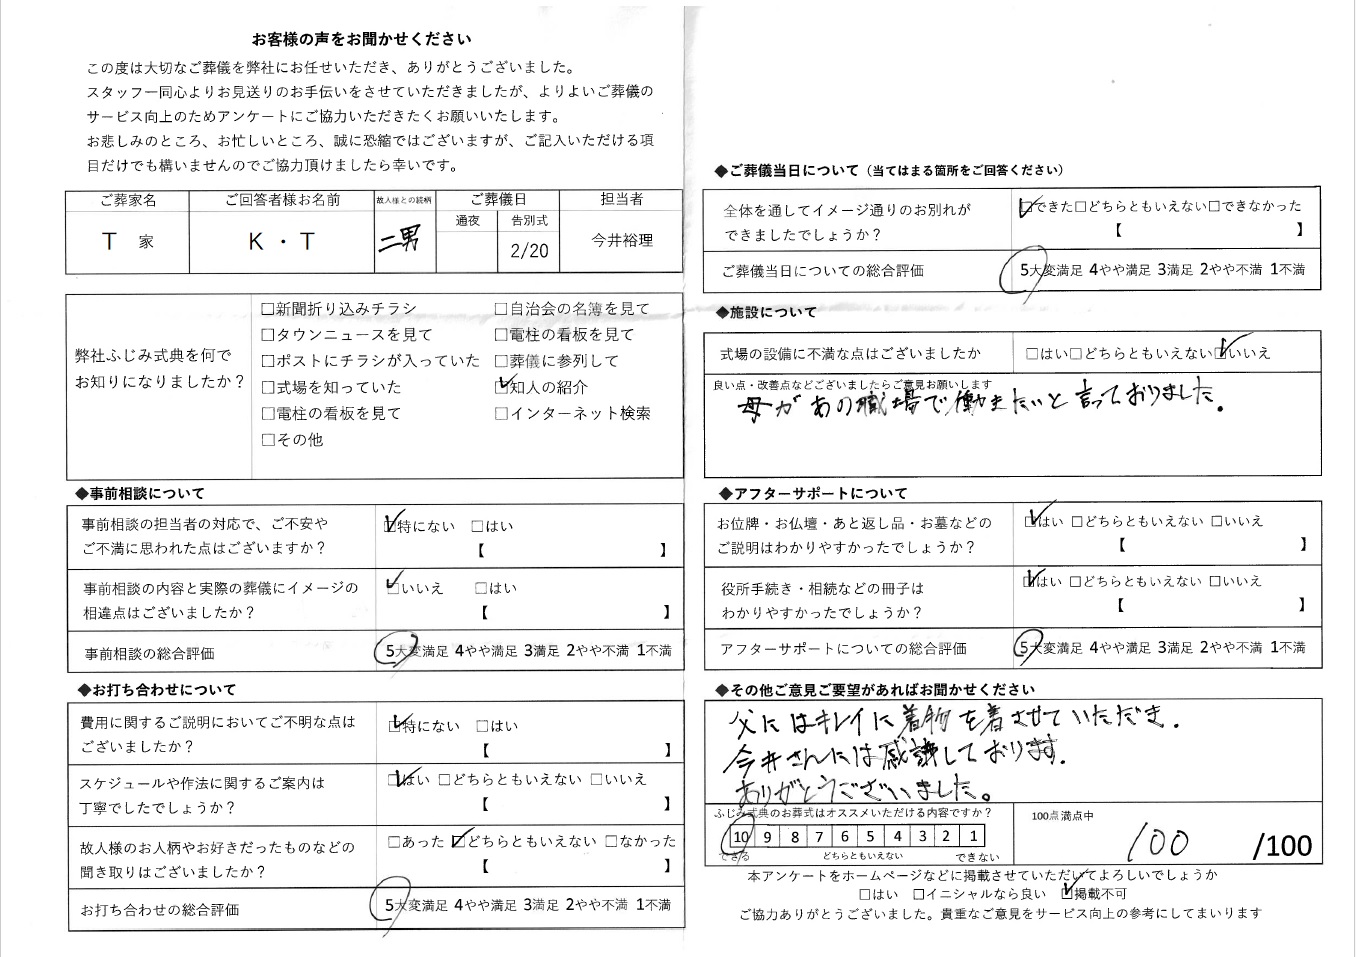 お客様の声をお聞かせください
この度は大切なご葬儀を弊社にお任せいただき、ありがとうございました。
スタッフ一同心よりお見送りのお手伝いをさせていただきましたが、よりよいご葬儀の
サービス向上のためアンケートにご協力いただきたくお願いいたします。
お悲しみのところ、お忙しいところ、誠に恐縮ではございますが、ご記入いただける項
目だけでも構いませんのでご協力頂けましたら幸いです。
ご葬家名 ご回答者様お名前 故人様との続柄 ご葬儀日 担当者
通夜 告別式
T 家 K・T 二男 2/20 今井裕理
弊社ふじみ式典を何で
お知りになりましたか?
□新聞折り込みチラシ □自治会の名簿を見て
□タウンニュースを見て □電柱の看板を見て
□ポストにチラシが入っていた □葬儀に参列して
□式場を知っていた ☑知人の紹介
□電柱の看板を見て □インターネット検索
□その他
◆事前相談について
事前相談の担当者の対応で、ご不安や
ご不満に思われた点はございますか?
☑特にない □はい
【 】
事前相談の内容と実際の葬儀にイメージの
相違点はございましたか?
☑いいえ □はい
【 】
事前相談の総合評価 5大変満足 4やや満足 3満足 2やや不満 1不満
◆お打ち合わせについて
費用に関するご説明においてご不明な点は
ございましたか?
☑特にない □はい
【 】
スケジュールや作法に関するご案内は
丁寧でしたでしょうか?
☑はい □どちらともいえない □いいえ
【 】
故人様のお人柄やお好きだったものなどの
聞き取りはございましたか?
□あった ☑どちらともいえない □なかった
【 】
お打ち合わせの総合評価 5大変満足 4やや満足 3満足 2やや不満 1不満
◆ご葬儀当日について(当てはまる箇所をご回答ください)
全体を通してイメージ通りのお別れが
できましたでしょうか?
☑できた□どちらともいえない□できなかった
【 】
ご葬儀当日についての総合評価 5大変満足 4やや満足 3満足 2やや不満 1不満
◆施設について
式場の設備に不満な点はございましたか □はい□どちらともいえない☑いいえ
良い点・改善点などございましたらご意見お願いします
母があの職場で働きたいと言っておりました。
◆アフターサポートについて
お位牌・お仏壇・あと返し品・お墓などの
ご説明はわかりやすかったでしょうか?
☑はい □どちらともいえない □いいえ
【 】
役所手続き・相続などの冊子は
わかりやすかったでしょうか?
☑はい □どちらともいえない □いいえ
【 】
アフターサポートについての総合評価 5大変満足 4やや満足 3満足 2やや不満 1不満
◆その他ご意見ご要望があればお聞かせください
父にはキレイに着物を着させていただき.
今井さんには感謝しております.
ありがとうございました。
ふじみ式典のお葬式はオススメいただける内容ですか?
10 9 8 7 6 5 4 3 2 1
できる どちらともいえない できない
100点満点中
100 /100
本アンケートをホームページなどに掲載させていただいてよろしいでしょうか
□はい □イニシャルなら良い ☑掲載不可
ご協力ありがとうございました。貴重なご意見をサービス向上の参考にしてまいります